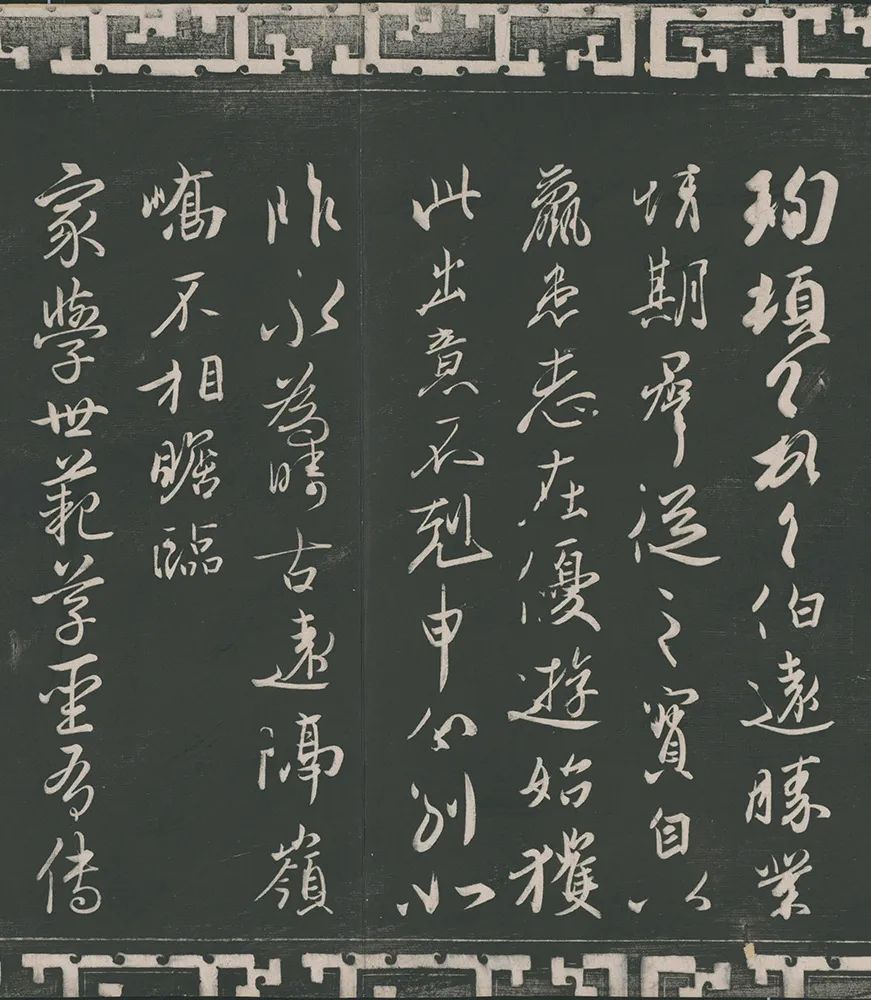 珣頓首頓首伯遠勝業
情期羣從之寶自以
羸患志在優遊始獲
此出意不剋申分別如
昨永為疇古遠隔嶺
嶠不相瞻臨
家學世範草聖有傳